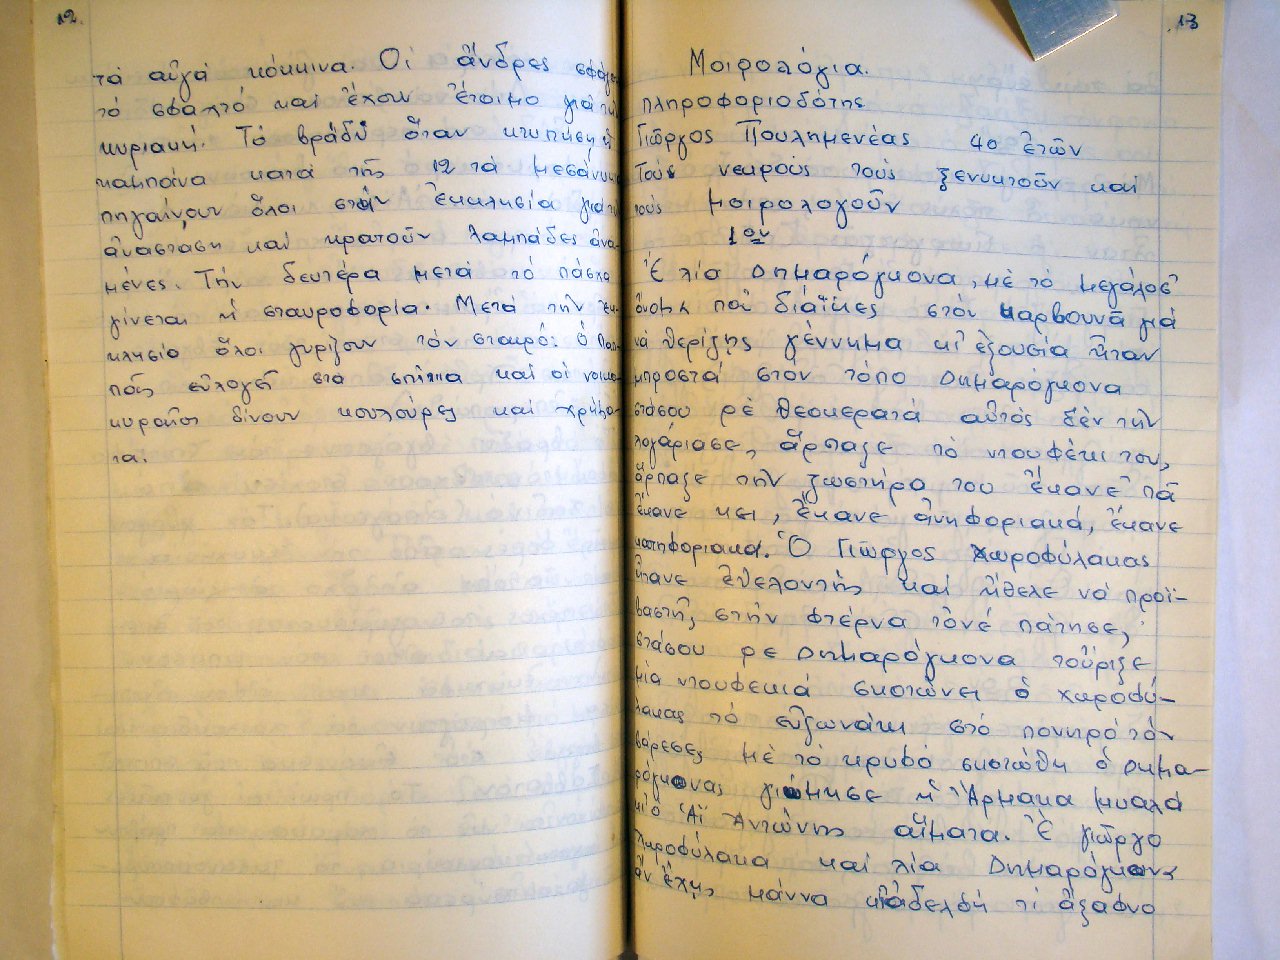 12.
τά αὖγά κόκκινα. Οἱ ἄνδρες
τό σφαλτό καί ἔχουν ἕτοιμο γιά τήν
κυριακή. Τό βράδυ ὅταν κτυπήση ἡ
καμπάνα κατά τῆς 12 τά
πηγαίνουν ὅλοι στήν ἐκκλησία γιά τήν
ἀνάσταση καί κρατοῦν λαμπάδες ἀνα-
μένες. Τήν δευτέρα μετά τό πάσχα
γίνεται ἡ σταυροφορία. Μετά τήν ἐκ-
κλησία ὅλοι γυρίζουν τόν σταυρό: ὁ Παπ-
πᾶς εὐλογεῖ στά σπίτια καί οἱ νοικο-
κυραῖοι δίνουν κουλούρες καί χρήμα-
τα.
13
Μοιρολόγια.
πληροφοριοδότης
Γιῶργος Πουλημενέας 40 ἐτῶν
Τούς νεκρούς τούς ξενυκτοῦν καί
τούς μοιρολογοῦν
1ον
Ἐ λία Δημαρόγκονα, μέ τό μεγάλος
ὄνομα ποῦ διάϊκες στόν καρβουνᾶ γιά
νά θερίσης γέννημα κι ἐξουσία ἦταν
μπροστά στόν τόπο Δημαρόγκονα
στάσου ρέ θεοκερατά αὐτός δέν τήν
λογάριασε, ἄρπαξε τό ντουφέκι του,
ἄρπαξε τήν ζωστήρα του ἔκανε πᾶ
ἔκανε κει, ἔκανε ἀνηφοριακά, ἔκανε
κατηφοριακά. Ὁ Γιῶργος χωροφύλακας
ἤτανε ἐθελοντής καί ἤθελε νά προϊ-
βαστῆ, στήν φτέρνα τόνέ πάτησε,
στάσου ρε Δημαρόγκονα τοὔριξε
μία ντουφεκιά σκοτώνει ὁ χωροφύ-
λακας τό εὐζωνάκι στό πονηρό τόν
βάρεσες μέ τό κρυφό σκοτώθη ὁ Δημα-
ρόγκονας γιόμησε ἡ Ἄρμακα μυαλά
κι ὁ Ἅϊ Ἀντώνης αἵματα. Ἐ γιῶργο
Χωροφύλακα καί λία Δημαρόγκονα
ἄν ἔχης μάννα κι ἀδελφή τί ἄξαφνο